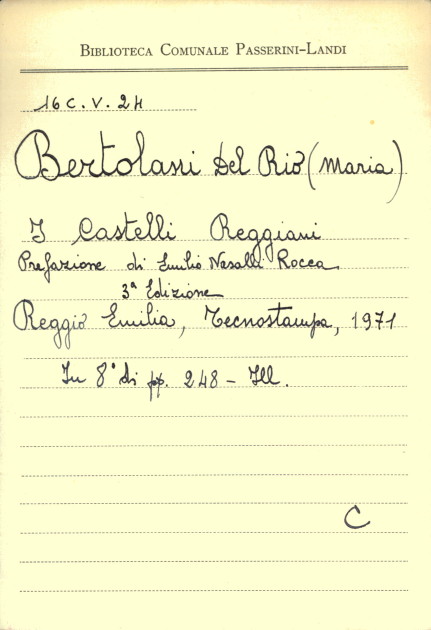 BIBLIOTECA COMUNALE PASSERINI-LANDI
16 C. V. 24
Bertolani Del Rio (Maria)
I Castelli Reggiani
Prefazione di Emilio Nasalli Rocca
3ª Edizione
Reggio Emilia, Tecnostampa, 1971
In 8° di pp. 248 - Ill.
C